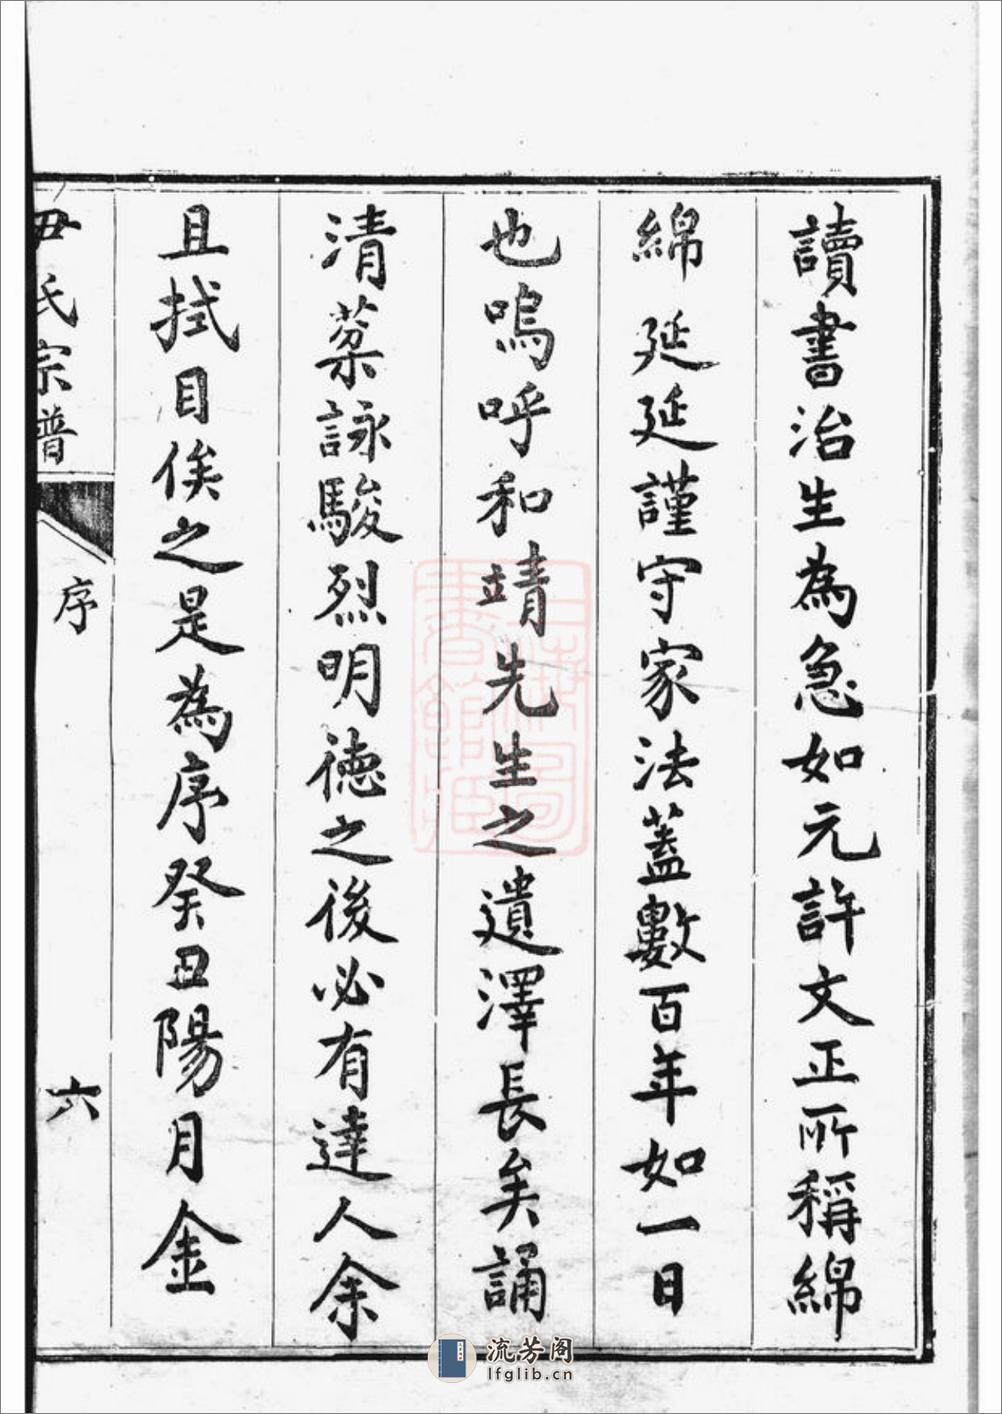 讀書治生為急如元許文正所稱綿
綿延延謹守家法蓋數百年如一日
也嗚呼和靖先生之遺澤長矣誦
清棻詠駿烈明德之後必有達人余
且拭目俟之是為序癸丑陽月金
尹氏宗普
序
六
上海圖書館藏
流芳阁
lfglib.cn